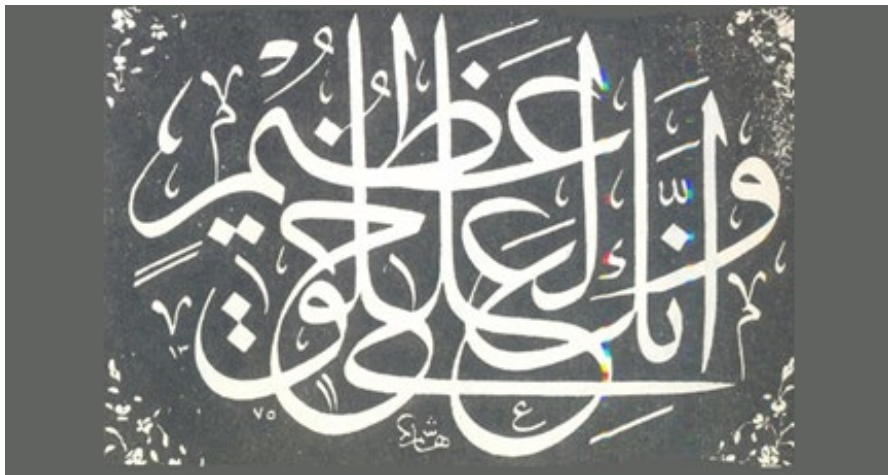 وَإِنَّكَ لَعَلَىٰ خُلُقٍ عَظِيمٍ
هاشم